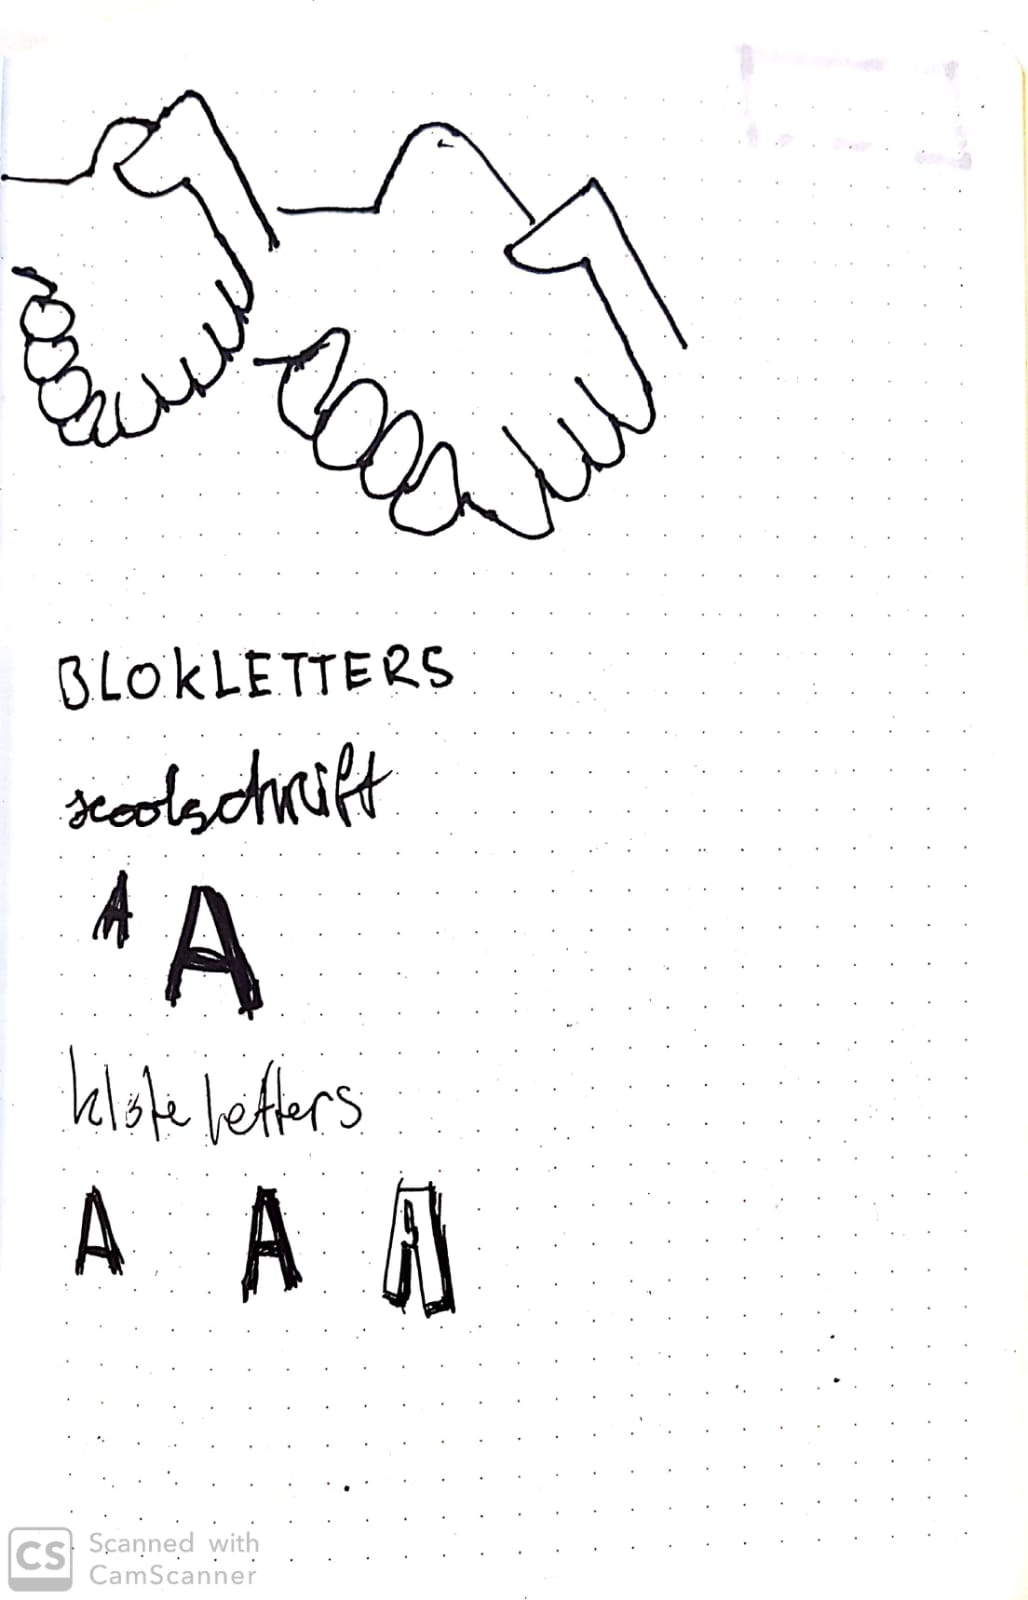 BLOKLETTERS
scoolschrift
A A
klote letters
A A A
CS Scanned with
CamScanner